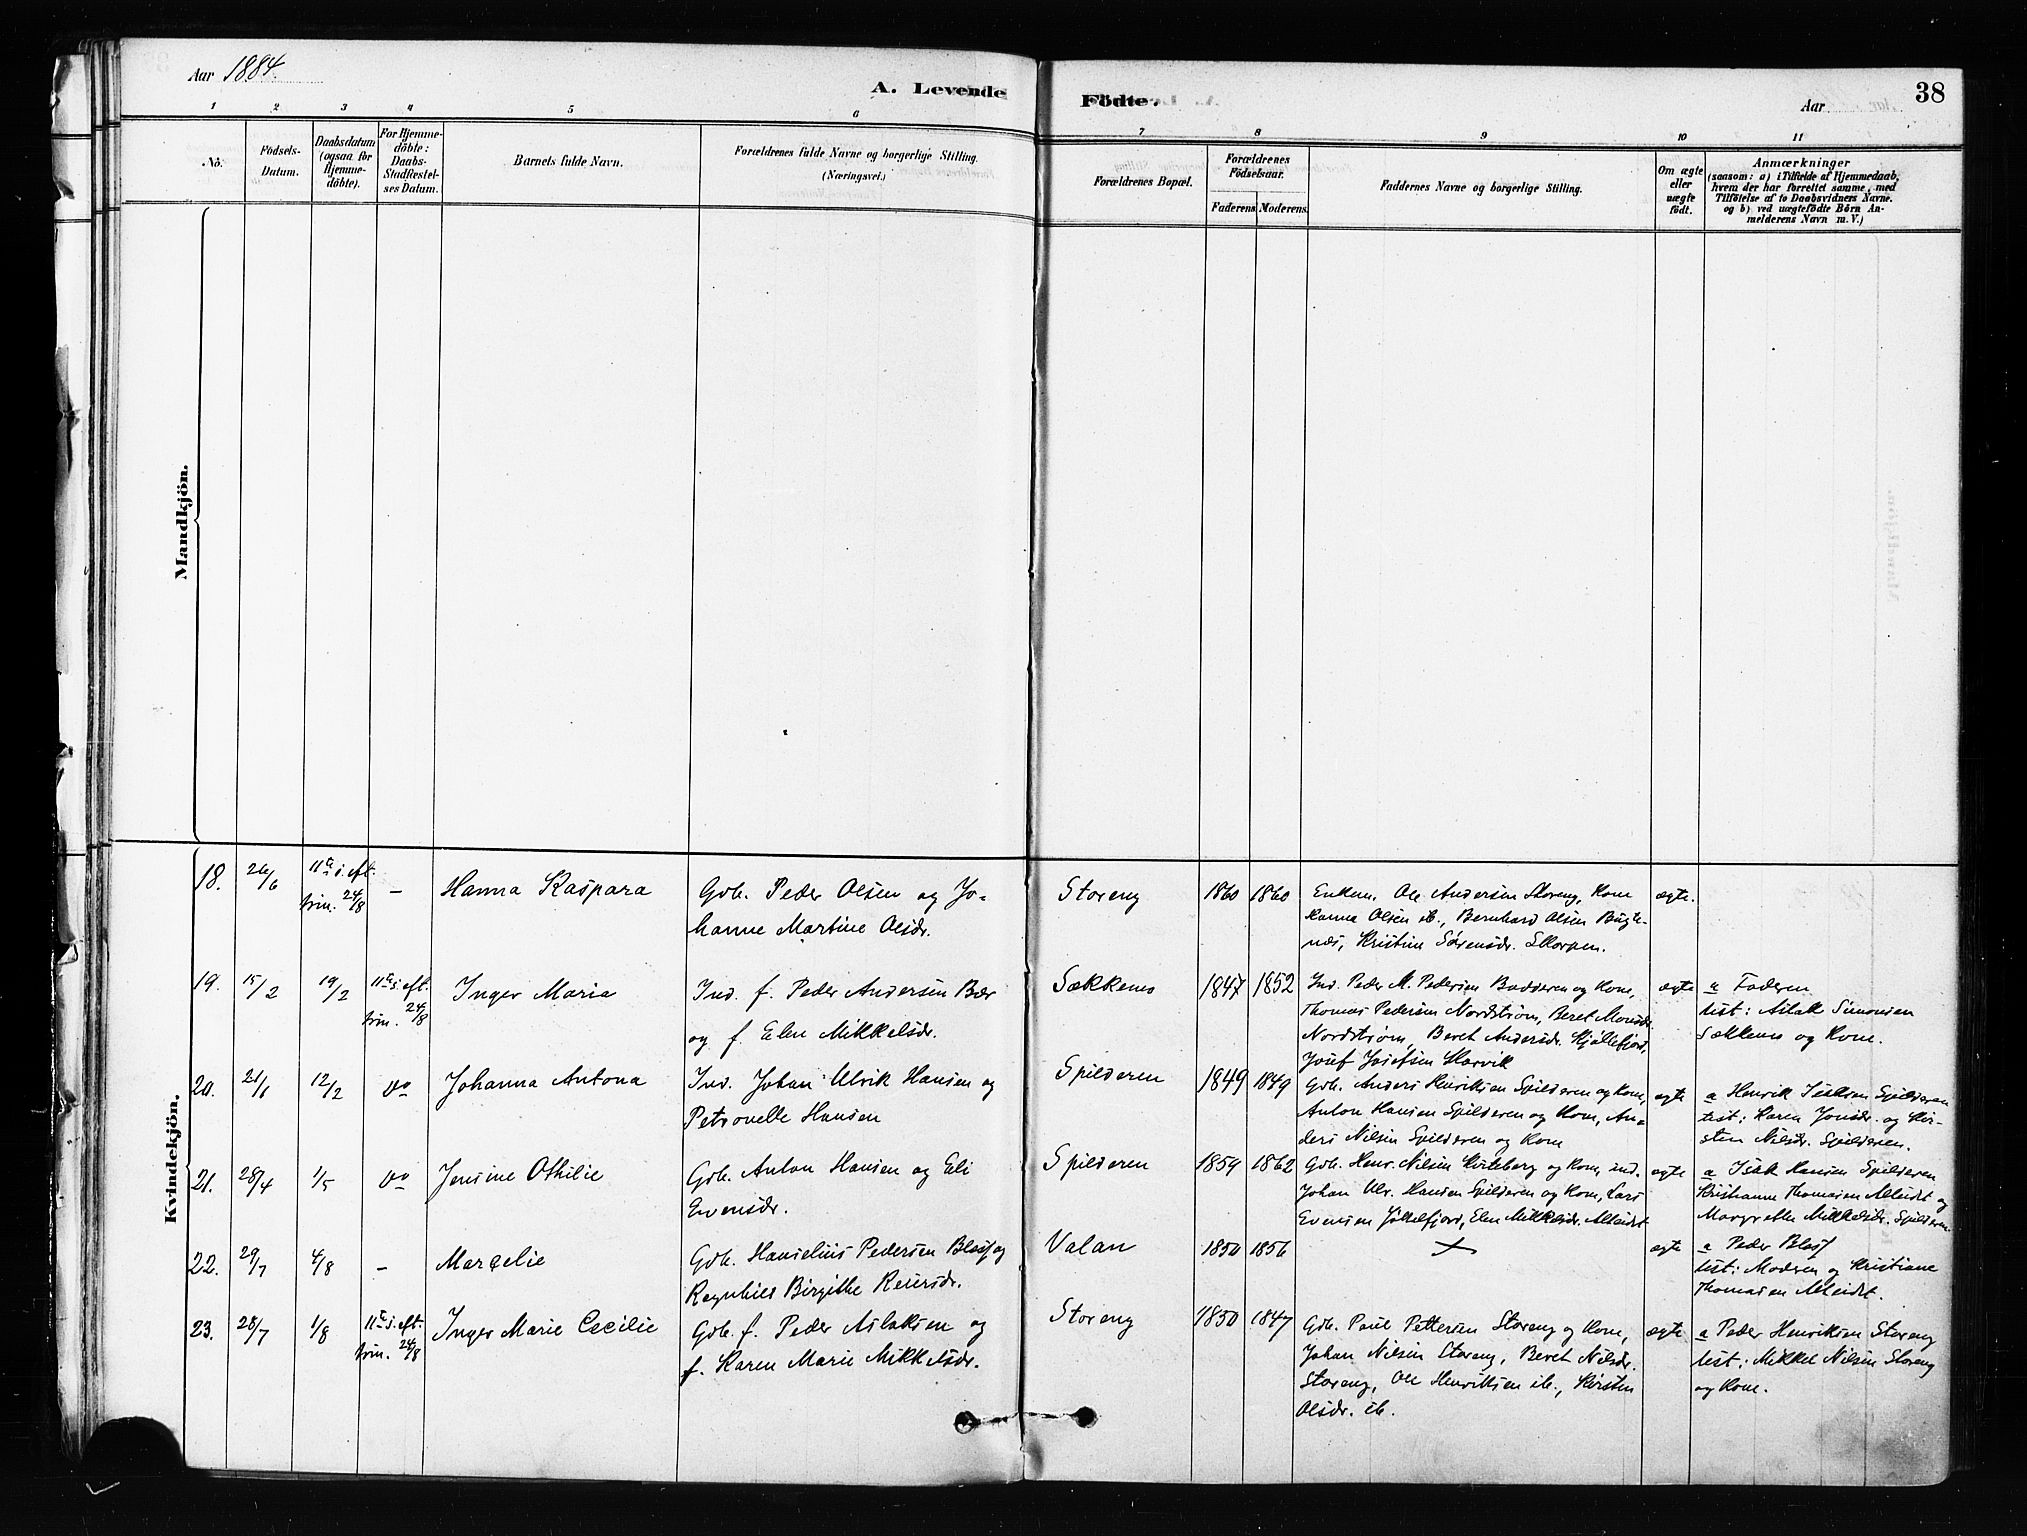 Aar 1884.
A. Levende Födte.
Aar
38
1 2 3 4 5 6 7 8 9 10 11
No.
Födsels-Datum.
Daabsdatum (ogsaa for Hjemme-döbte).
For Hjemme-döbte: Daabs-Stadfæstel-ses Datum.
Barnets fulde Navn.
Forældrenes fulde Navne og borgerlige Stilling.
(Næringsvei.)
Forældrenes Bopæl.
Forældrenes Födselsaar.
Faderens Moderens
Faddernes Navne og borgerlige Stilling.
Om ægte eller uægte födt.
Anmærkninger
(saasom: a) i Tilfælde af Hjemmedaab,
hvem der har forrettet samme, med
Tilföielse af to Daabsvidners Navne,
og b) ved uægtefödte Börn An-
melderens Navn m. V.)
Mandkjön.
Kvindekjön.
18. 26/6 11te s. eft. trin. 24/8 — Hanna Kaspara
Gdb. Peder Olsen og Jo-
hanne Martine Olsdr.
Storeng 1860 1860
Enkem. Ole Andersen Storeng, Kone
Hanna Olsen ib., Bernhard Olsen Bugte-
næs, Kristine Sørensdr. Skorpen.
ægte.
19. 15/2 19/2 11te s. eft. trin. 24/8 Inger Maria
Ind. f. Peder Andersen Bær
og f. Elen Mikkelsdr.
Sækkemo 1847 1852
Ind. Peder M. Pedersen Badderen og Kone,
Thomas Pedersen Nordstrøm, Beret Monsdr.
Nordstrøm, Beret Andersdr. Kjøllefjord,
Josef Josefsen
ægte
a Faderen
test: Aslak Simonsen
Sækkemo og Kone.
20. 21/1 12/2 do Johanna Antona
Ind. Johan Ulrik Hansen og
Petronelle Hansen
Spilderen 1849 1849
Gdb. Anders Henriksen Spilderen og Kone,
Anton Hansen Spilderen og Kone, An-
ders Nilsen Spilderen og Kone
ægte
a Henrik Isaksen Spilderen
test: Karen Jonsdr. og Kir-
sten Nilsdr. Spilderen.
21. 28/4 1/5 do Jensine Othilie
Gdb. Anton Hansen og Eli
Evensdr.
Spilderen 1859 1862
Gdb. Henr. Nilsen Kirkeberg og Kone, ind.
Johan Ulr. Hansen Spilderen og Kone, Lars
Evensen Jøkelfjord, Elen Mikkelsdr. Alteidet
ægte
a Isak Hansen Spilderen
Kristianne Thomasen Alteidet og
Margrethe Mikkelsdr. Spilderen
22. 29/7 4/8 — Marcelie
Gdb. Hanselius Pedersen Blasf og
Regnhild Birgithe Reiersdr.
Valan 1850 1856
+
ægte
a Peder Blasf
test: Modren og Kristiane
Thomasen Alteidet.
23. 28/7 1/8 11te s. eft. trin. 24/8 Inger Marie Cecilie
Gdb. f. Peder Aslaksen og
f. Karen Marie Mikkelsdr.
Storeng 1850 1847
Gdb. Paul Pettersen Storeng og Kone,
Johan Nilsen Storeng, Beret Nilsdr.
Storeng, Ole Henriksen ib., Kirsten
Olsdr. ib.
ægte
a Peder Henriksen Storeng
test: Mikkel Nilsen Storeng
og Kone.